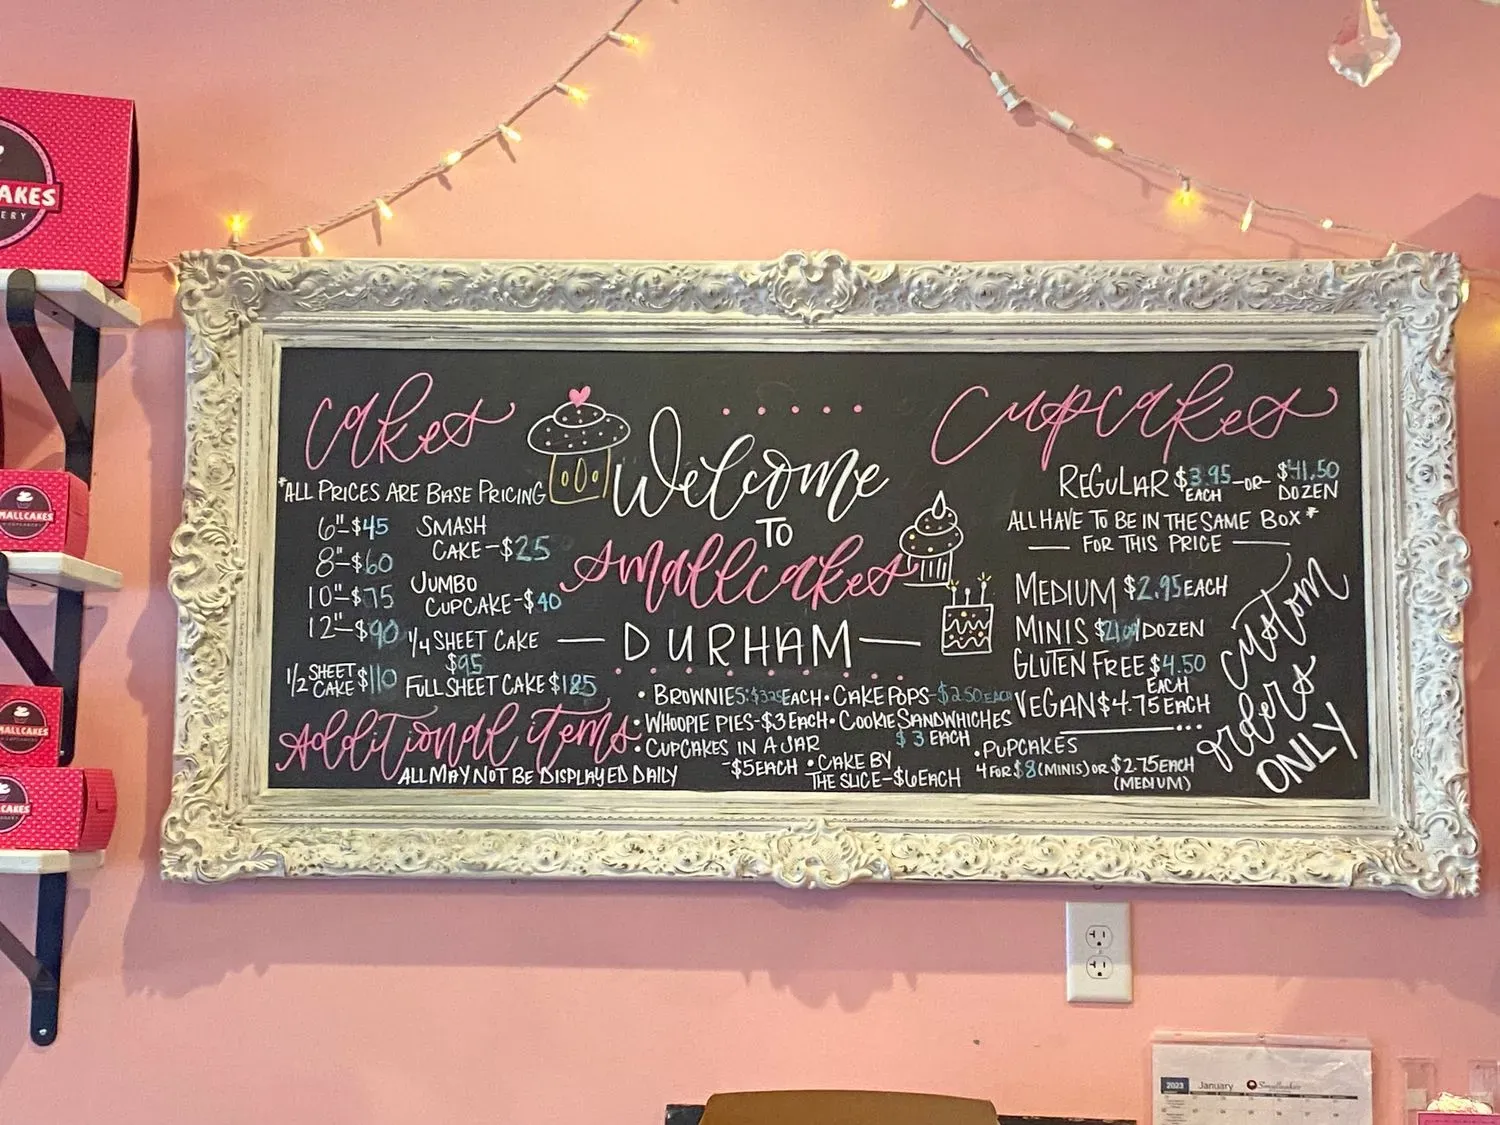 AKES
ERY
MALLCAKES
MALLCAKES
CAKES
Cakes
*ALL PRICES ARE BASE PRICING
6"-$45
8"-$60
10"-$75
12"-$90
1/2 SHEET CAKE $110
SMASH
CAKE-$25
JUMBO
CUPCAKE-$40
1/4 SHEET CAKE
$95
FULL SHEET CAKE $185
Welcome
TO
smallcakes
— DURHAM —
Cupcakes
REGULAR $3.95 EACH -OR- $41.50 DOZEN
ALL HAVE TO BE IN THE SAME BOX*
— FOR THIS PRICE —
MEDIUM $2.95 EACH
MINIS /DOZEN
GLUTEN FREE $4.50
EACH
VEGAN $4.75 EACH
custom
orders
ONLY
Additional items
ALL MAY NOT BE DISPLAYED DAILY
• BROWNIES: $3.25 EACH • CAKE POPS- $2.50 EACH
• WHOOPIE PIES-$3 EACH • COOKIE SANDWHICHES
$3 EACH
• CUPCAKES IN A JAR
-$5 EACH
• CAKE BY
THE SLICE-$6 EACH
• PUPCAKES
4 FOR $8 (MINIS) OR $2.75 EACH
(MEDIUM)
2023 January Smallcakes